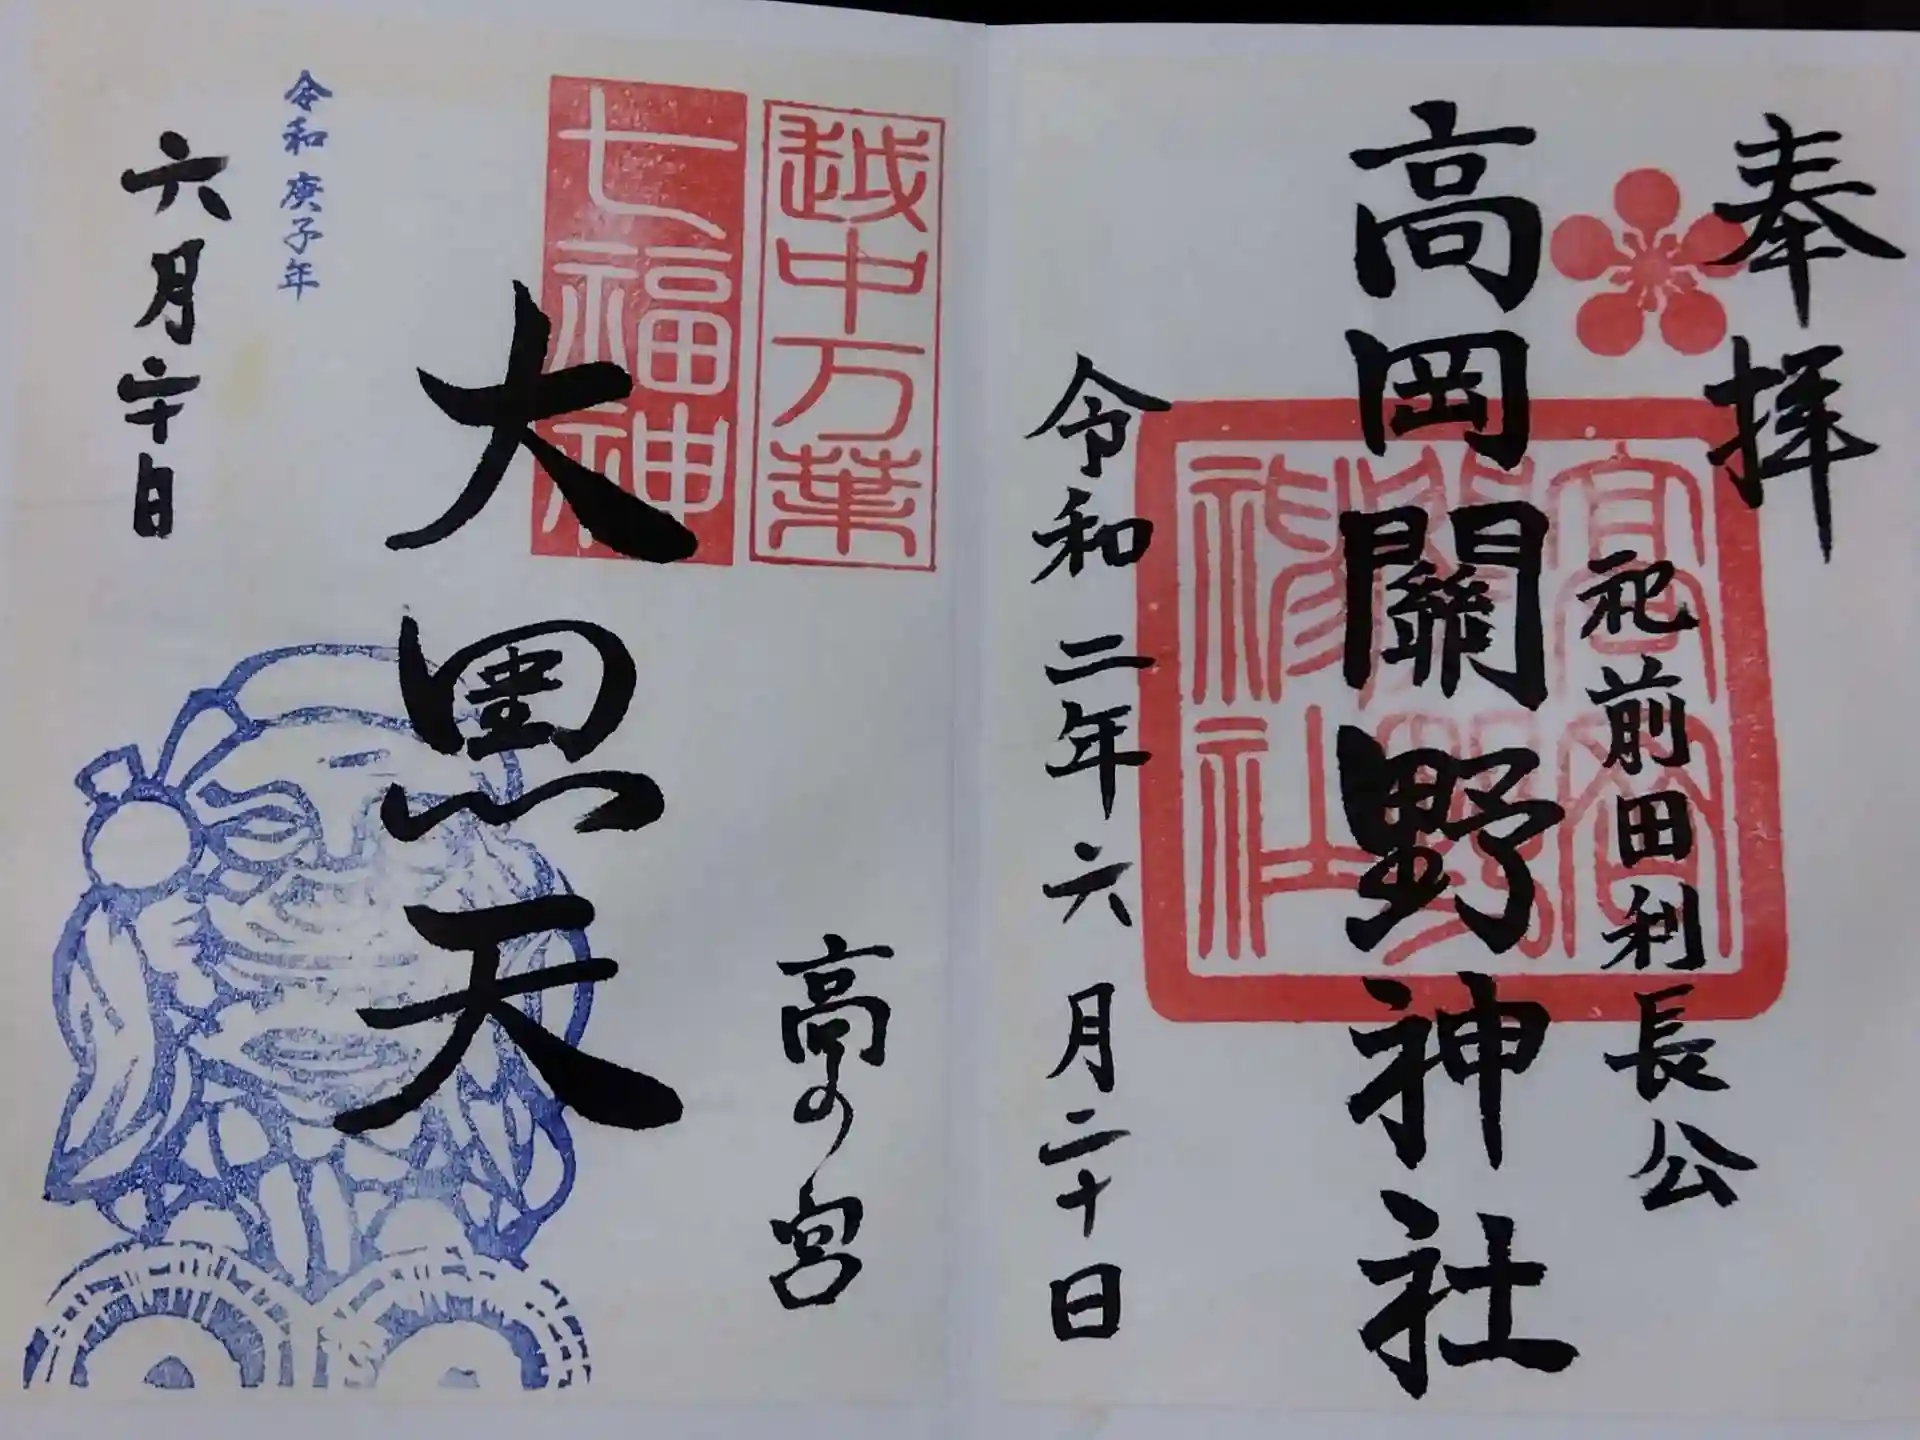 奉拝
祀前田利長公
高岡關野神社
令和二年六月二十日
越中万葉
七福神
高の宮
大黒天
令和庚子年
六月二十日